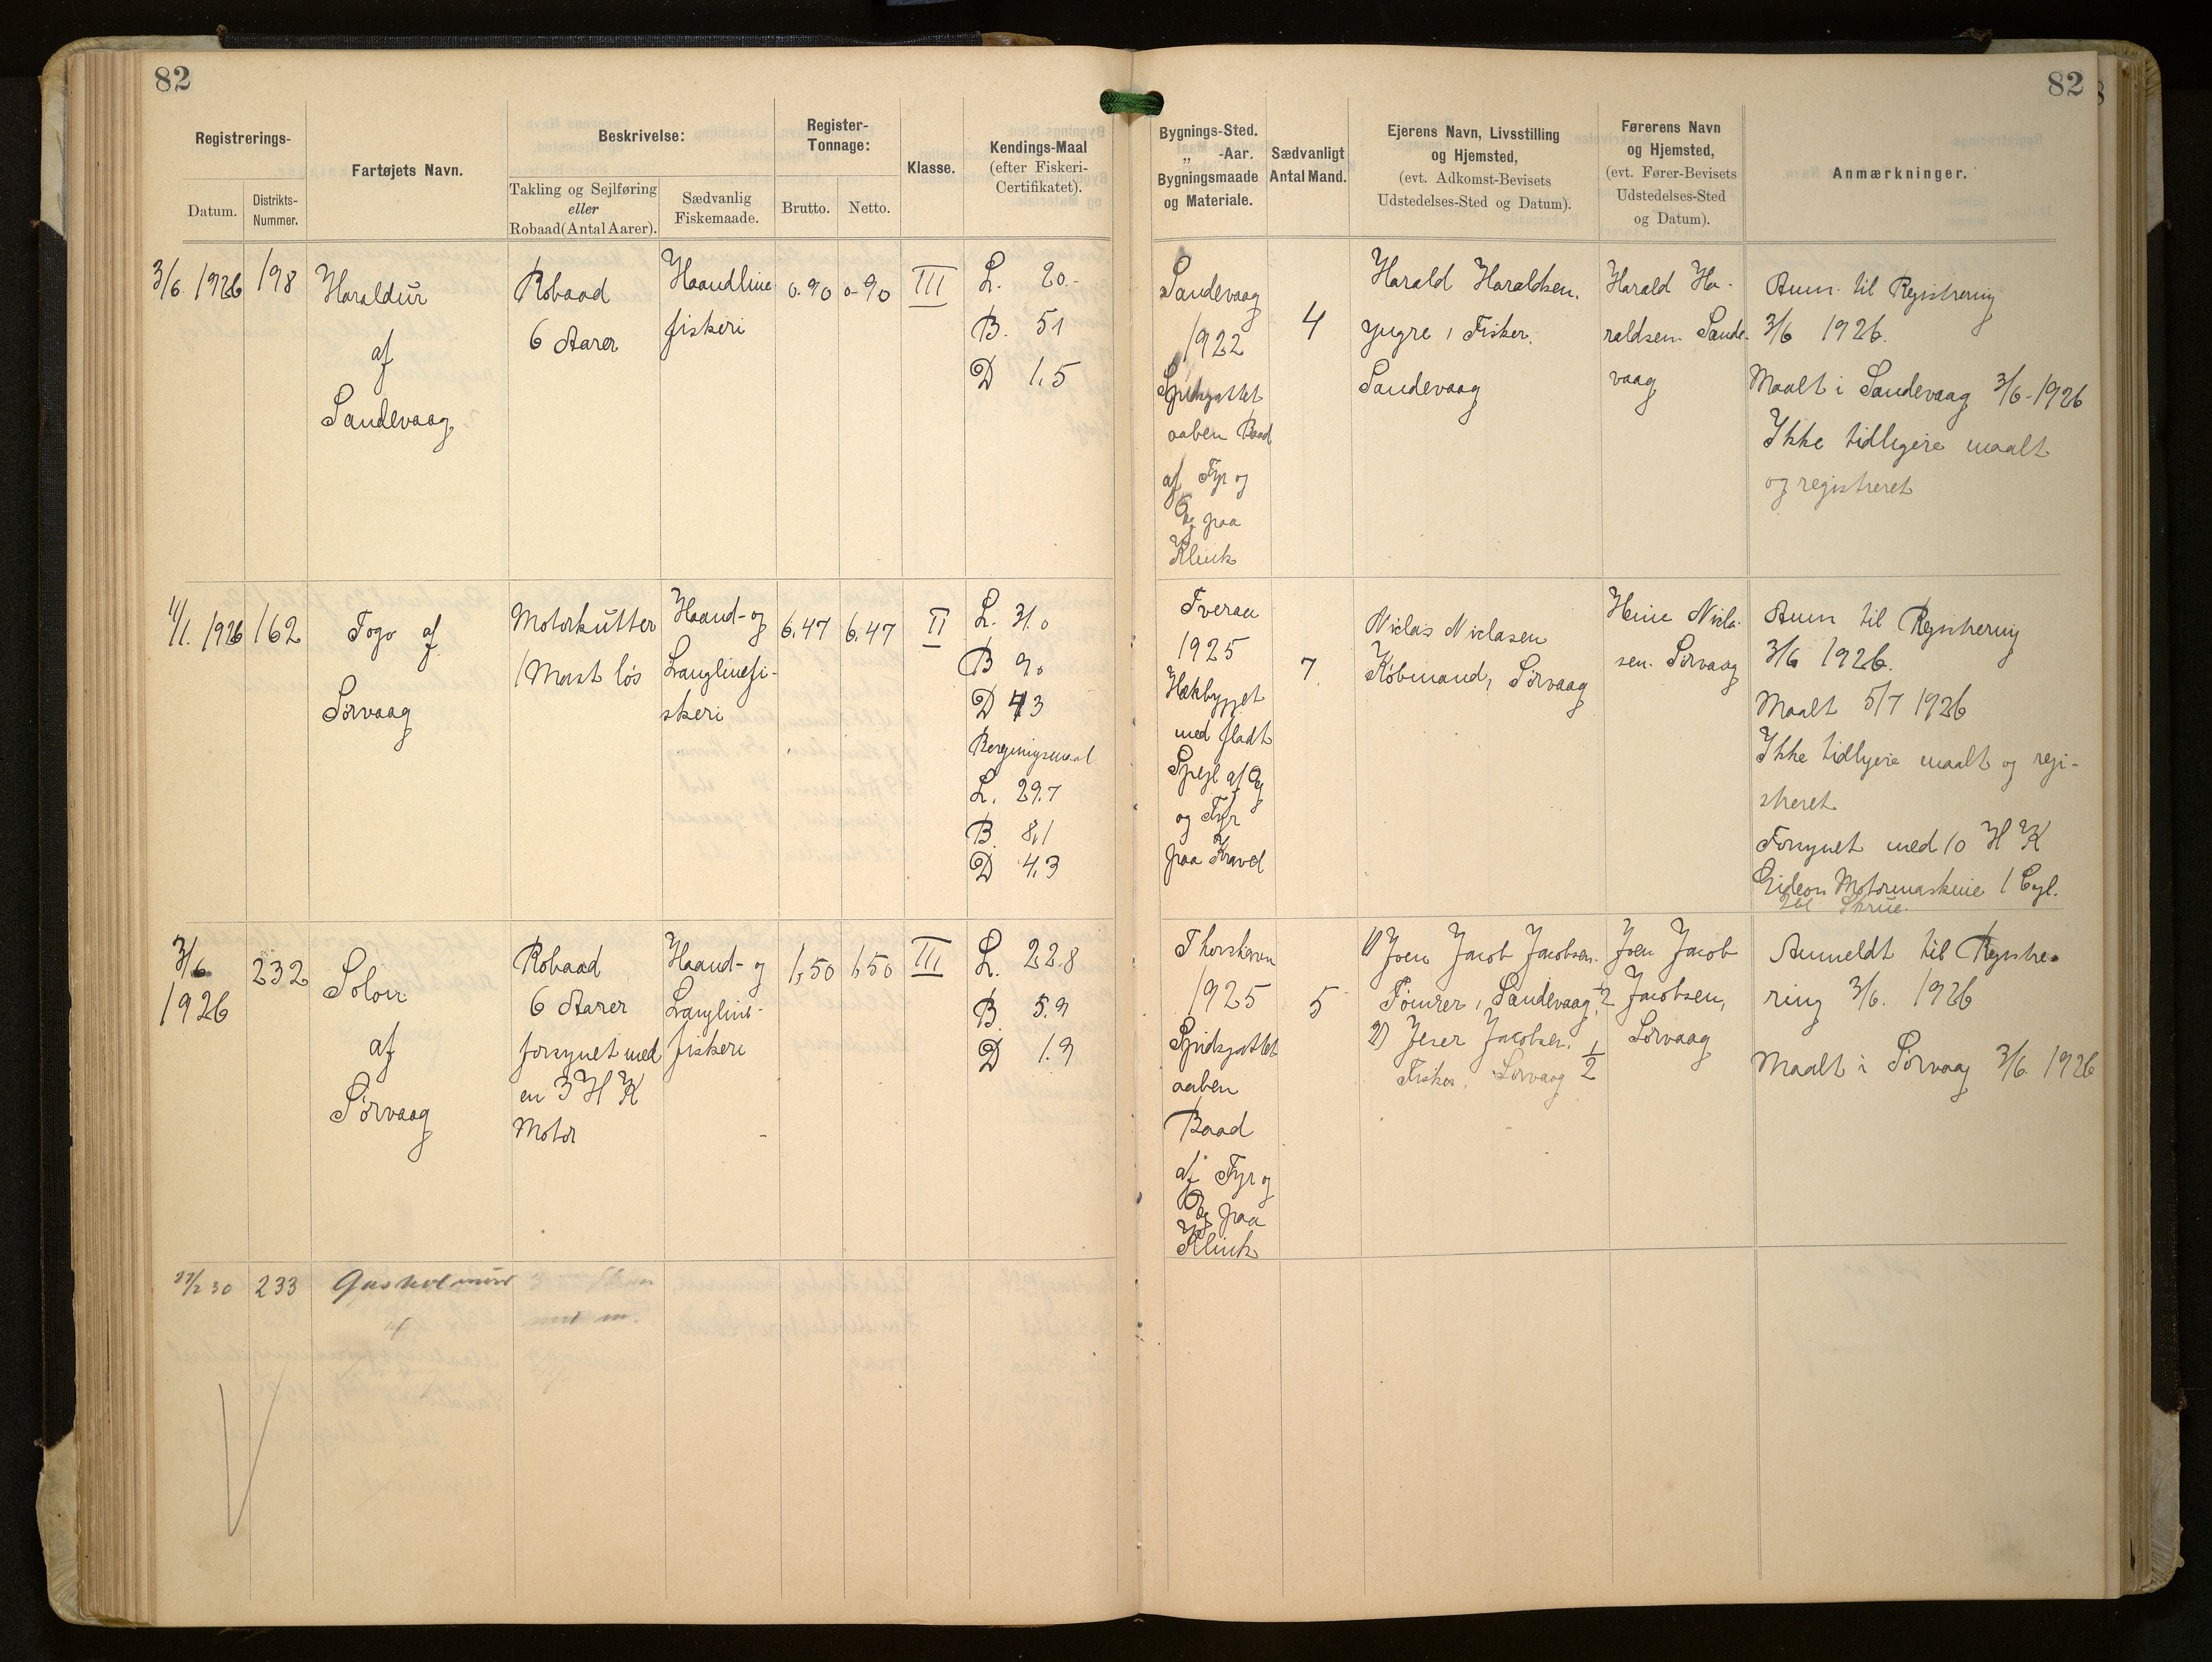 82
82
Registrerings-
Datum.
Distrikts-
Nummer.
Fartøjets Navn.
Beskrivelse:
Takling og Sejlføring
eller
Robaad (Antal Aarer).
Sædvanlig
Fiskemaade.
Register-
Tonnage:
Brutto.
Netto.
Klasse.
Kendings-Maal
(efter Fiskeri-
Certifikatet).
Bygnings-Sted.
„ -Aar.
Bygningsmaade
og Materiale.
Sædvanligt
Antal Mand.
Ejerens Navn, Livsstilling
og Hjemsted,
(evt. Adkomst-Bevisets
Udstedelses-Sted og Datum).
Førerens Navn
og Hjemsted,
(evt. Fører-Bevisets
Udstedelses-Sted
og Datum).
Anmærkninger.
3/6. 1926
198
Haraldur
af
Sandevaag
Robaad
6 Aarer
Haandline
fiskeri
0.90
0-90
III
L. 20.-
B. 51
D 1,5
Sandevaag
1922
Spidsgattet
aaben Baad
af Fyr og
Eg paa
Klink
4
Harald Haraldsen.
yngre, Fisker.
Sandevaag
Harald Ha-
raldsen. Sande-
vaag
Anm. til Registrering
3/6 1926.
Maalt i Sandevaag 3/6-1926
Ikke tidligere maalt
og registreret
1926
162
Togo af
Sörvaag
Motorkutter
1 Mast løs
Haand- og
Langlinefi-
skeri
6.47
6.47
II
L. 31.0
B 9.0
D 4,3
Bregningsmaal
L. 29.7
B. 8,1
D 4,3
Tveraa
1925
Hækbygget
med fladt
Spejl af Eg
og Fyr
paa Kravel
7.
Niclas Niclasen
Købmand, Sörvaag
Heine Nicla-
sen. Sörvaag
Anm til Registrering
3/6 1926.
Maalt 5/7 1926
Ikke tidligere maalt og regi-
streret
Forsynet med 10 H K
Gideon Motormaskine 1 Cyl.
Skrue.
3/6
1926
232
Soloü
af
Sörvaag
Robaad
6 Aarer
forsynet med
en 3 H K
Motor
Haand- og
Langline-
fiskeri
1,50
1,50
III
L. 22.8
B. 5.9
D 1.9
Thorshavn
1925
Spidsgattet
aaben
Baad
af Fyr og
Eg paa
Klink
5
1) Joen Jacob Jacobsen.
Tömrer, Sandevaag, 1/2
2) Jeser Jacobsen, 1/2
Fisker, Sörvaag
Joen Jacob
Jacobsen,
Sörvaag
Anmeldt til Registre-
ring 3/6. 1926
Maalt i Sörvaag 3/6. 1926
27/2 30
233
af